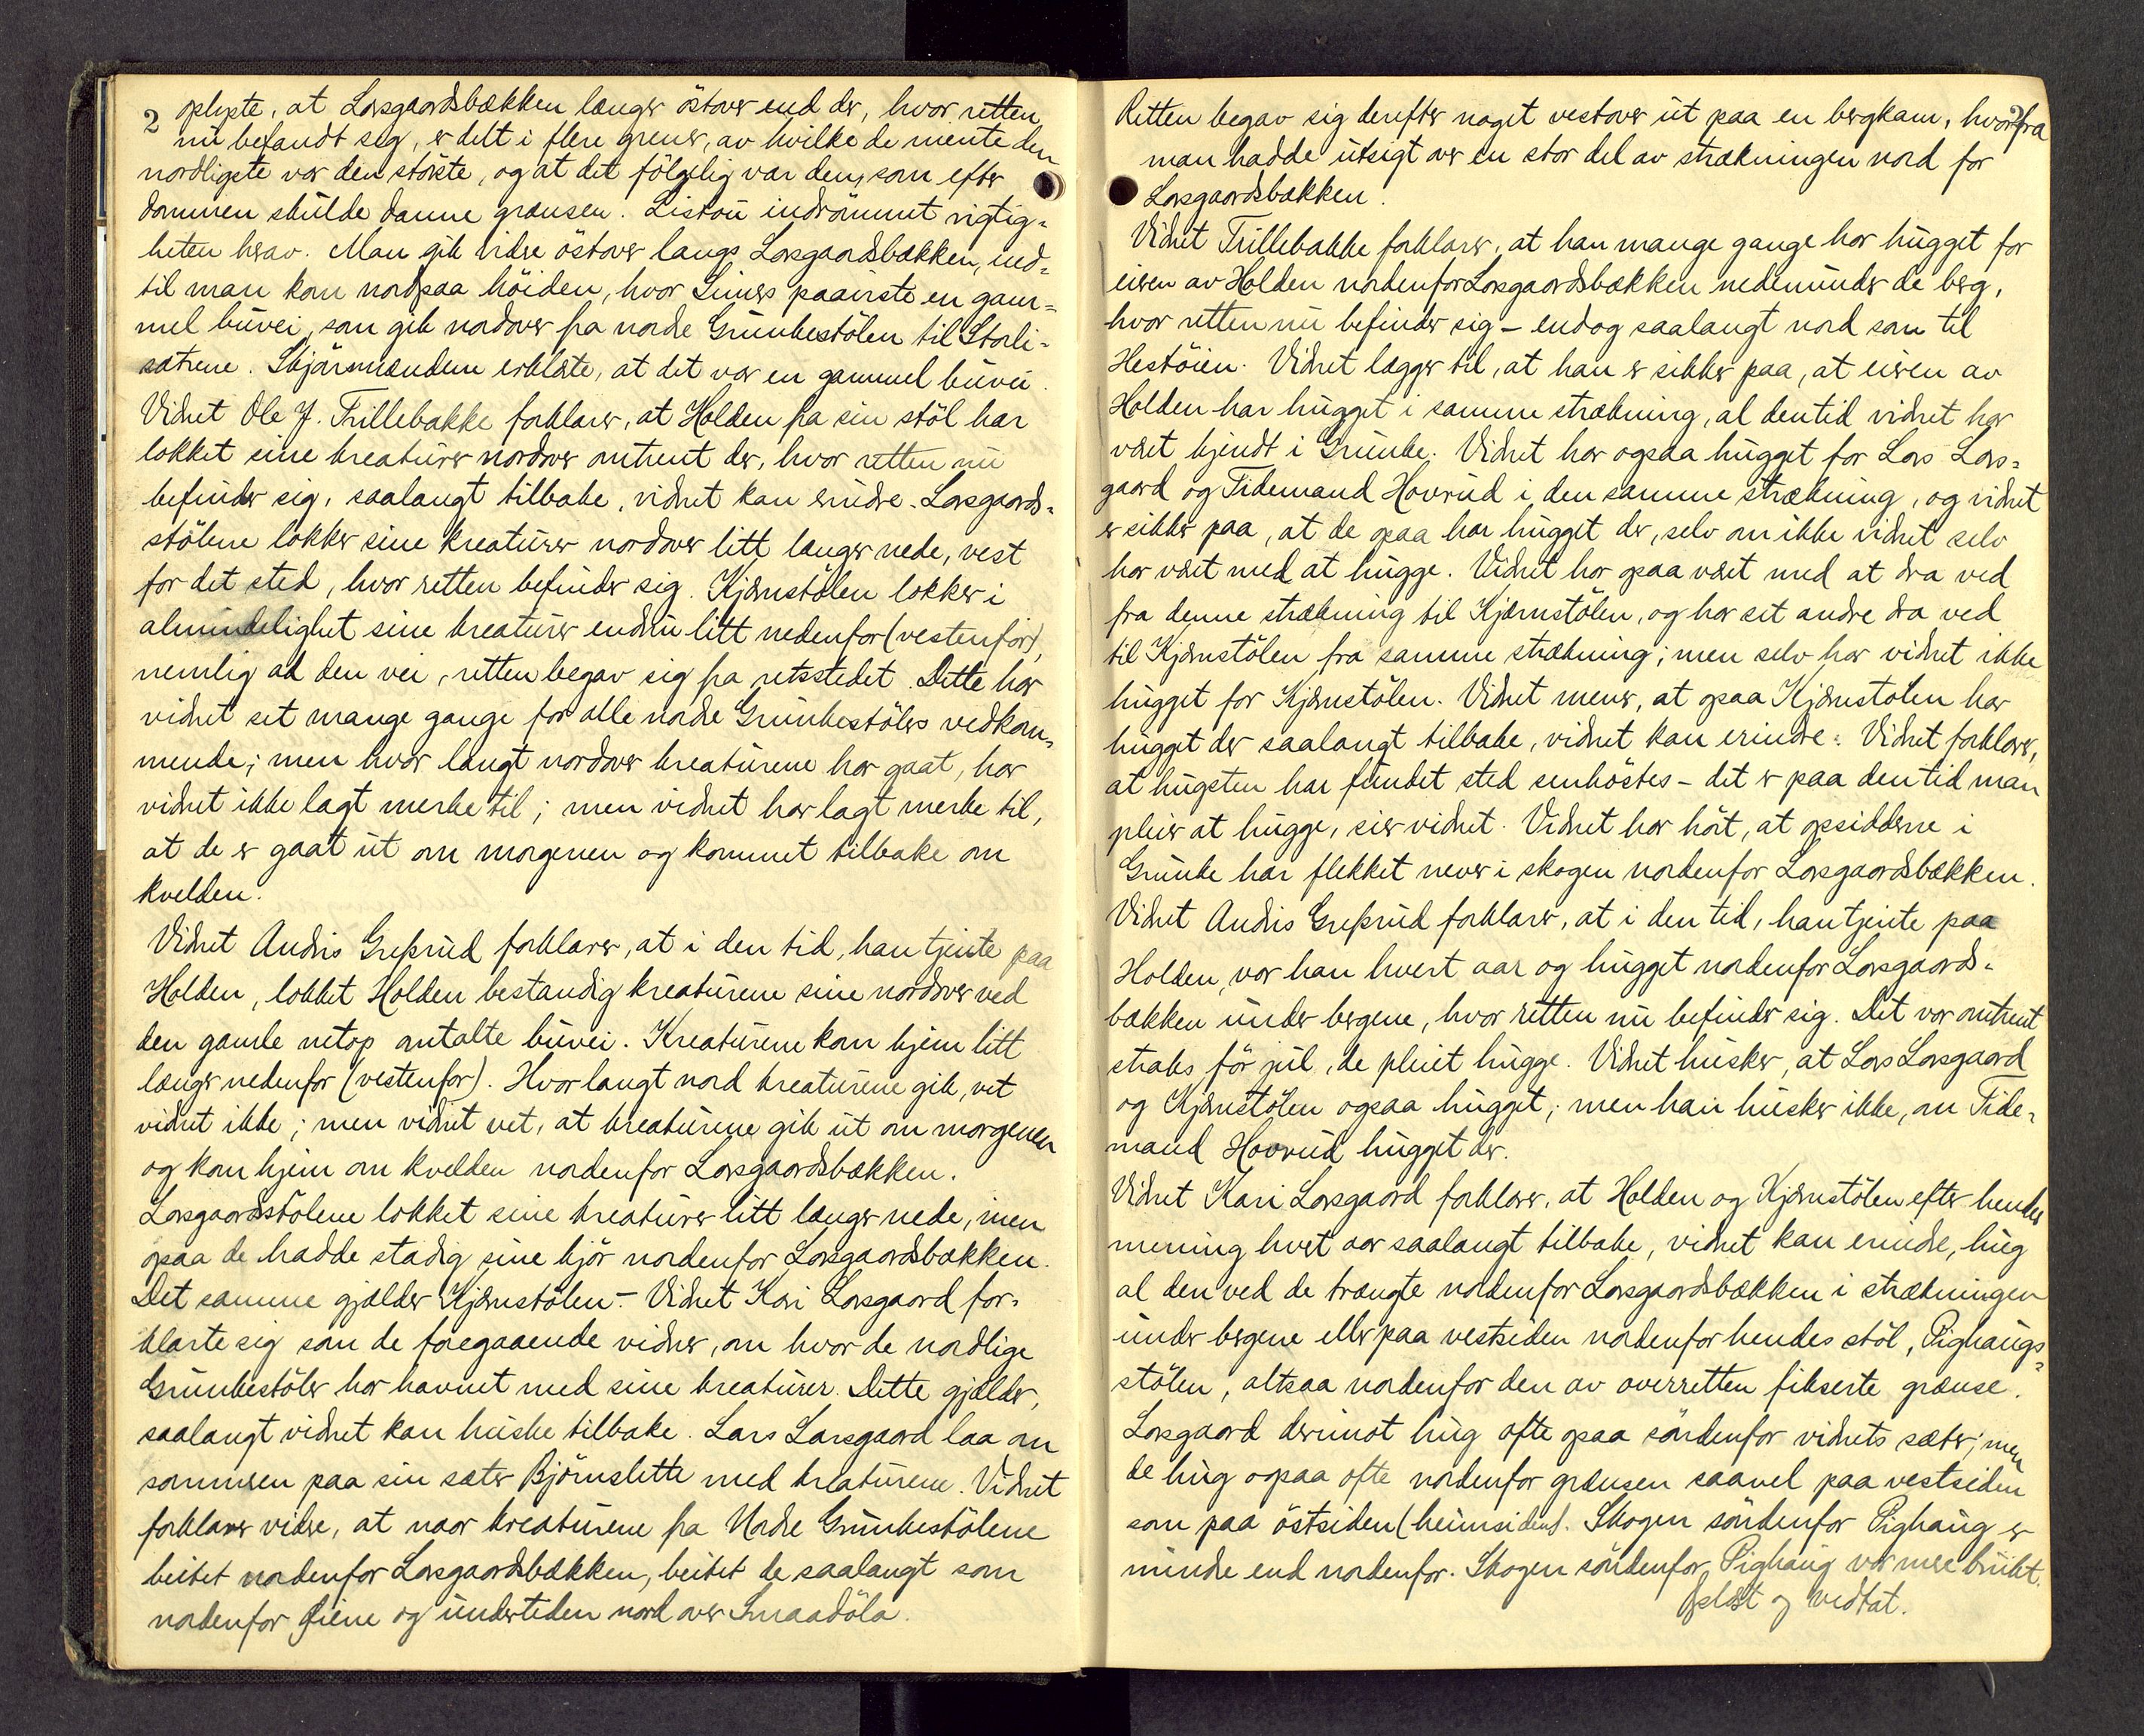 2 oplyste, at Lorsgaardsbækken længer östover end der, hvor retten
nu befandt sig, er delt i flere grener, av hvilke de mente den
nordligste var den störste, og at det fölgelig var den, som efter
dommen skulde danne grænsen. Liston indrömmet rigtig-
heten herav. Man gik videre östover langs Lorsgaardsbækken, ind-
til man kom nord paa höiden, hvor Liners paaviste en gam-
mel buvei, som gik nordover fra nordre Grunkestölen til Storli-
sætrene. Skjönsmændene erklærte, at det var en gammel buvei.
Vidnet Ole J. Trillebakke forklarer, at Holden fra sin stöl har
lokket sine kreaturer nordover omtrent der, hvor retten nu
befinder sig, saalangt tilbake, vidnet kan erindre. Lorsgaards-
stölene lokker sine kreaturer nordover litt længer nede, vest
for det sted, hvor retten befinder sig. Kjærnstölen lokker i
almindelighet sine kreaturer endnu litt nedenfor (vestenfor),
nemlig ad den vei, retten begav sig fra retsstedet. Dette har
vidnet set mange gange for alle nordre Grunkestölers vedkom-
mende; men hvor langt nordover kreaturene har gaat, har
vidnet ikke lagt merke til; men vidnet har lagt merke til,
at de er gaat ut om morgenen og kommet tilbake om
kvelden.
Vidnet Andris Grefsrud forklarer, at i den tid, han tjente paa
Holden, lokket Holden bestandig kreaturene sine nordover ved
den gamle netop omtalte buvei. Kreaturene kom hjem litt
længer nedenfor (vestenfor). Hvor langt nord kreaturene gik, vet
vidnet ikke; men vidnet vet, at kreaturene gik ut om morgenen
og kom hjem om kvelden nordenfor Lorsgaardsbækken.
Lorsgaardsstölene lokket sine kreaturer litt længer nede, men
ogsaa de hadde stadig sine kjör nordenfor Lorsgaardsbækken.
Det samme gjælder Kjærnstölen. - Vidnet Kari Lorsgaard for-
klarte sig som de foregaaende vidner, om hvor de nordlige
Grunkestöler har havnet med sine kreaturer. Dette gjælder,
saalangt vidnet kan huske tilbake. Lars Larsgaard laa om
sommeren paa sin sæter Björnslette med kreaturene. Vidnet
forklarer videre, at naar kreaturene fra Nordre Grunkestölene
beitet nordenfor Lorsgaardsbækken, beitet de saalangt som
nordenfor Öiene og undertiden nord over Smaadöla.
Retten begav sig derefter noget vestover ut paa en bergkam, hvorfra
man hadde utsigt over en stor del av strækningen nord for
Lorsgaardsbækken.
Vidnet Trillebakke forklarer, at han mange gange har hugget for
eieren av Holden nordenfor Lorsgaardsbækken nedenunder de berg,
hvor retten nu befinder sig - endog saalangt nord som til
Hestöien. Vidnet lægger til, at han er sikker paa, at eieren av
Holden har hugget i samme strækning, al den tid vidnet har
været kjendt i Grunke. Vidnet har ogsaa hugget for Lars Lors-
gaard og Tidemand Hovrud i den samme strækning, og vidnet
er sikker paa, at de ogsaa har hugget der, selv om ikke vidnet selv
har været med at hugge. Vidnet har ogsaa været med at dra ved
fra denne strækning til Kjærnstölen, og har set andre dra ved
til Kjærnstölen fra samme strækning; men selv har vidnet ikke
hugget for Kjærnstölen. Vidnet mener, at ogsaa Kjærnstölen har
hugget der saalangt tilbake, vidnet kan erindre. Vidnet forklarer,
at hugsten har fundet sted senhöstes - det er paa den tid man
pleier at hugge, sier vidnet. Vidnet har hört, at opsidderne i
Grunke har flekket never i skogen nordenfor Lorsgaardsbækken.
Vidnet Andris Grefsrud forklarer, at i den tid, han tjente paa
Holden, var han hvert aar og hugget nordenfor Lorsgaards-
bækken under bergene, hvor retten nu befinder sig. Det var omtrent
straks för jul, de pleiet hugge. Vidnet husker, at Lars Lorsgaard
og Kjærnstölen ogsaa hugget; men han husker ikke, om Tide-
mand Hovrud hugget der.
Vidnet Kari Lorsgaard forklarer, at Holden og Kjærnstölen efter hendes
mening hvert aar saalangt tilbake, vidnet kan erindre, hug
al den ved de trængte nordenfor Lorsgaardsbækken i strækningen
under bergene eller paa vestsiden nordenfor hendes stöl, Pighaugs-
stölen, altsaa nordenfor den av overretten fikserte grænse.
Lorsgaard derimot hug ofte ogsaa söndenfor vidnets sæter; men
de hug ogsaa ofte nordenfor grænsen saavel paa vestsiden
som paa östsiden (heimsiden). Skogen söndenfor Pighaug er
mindre end nordenfor. Skogen söndenfor Pighaug var mere brukt.
Oplæst og vedtat.